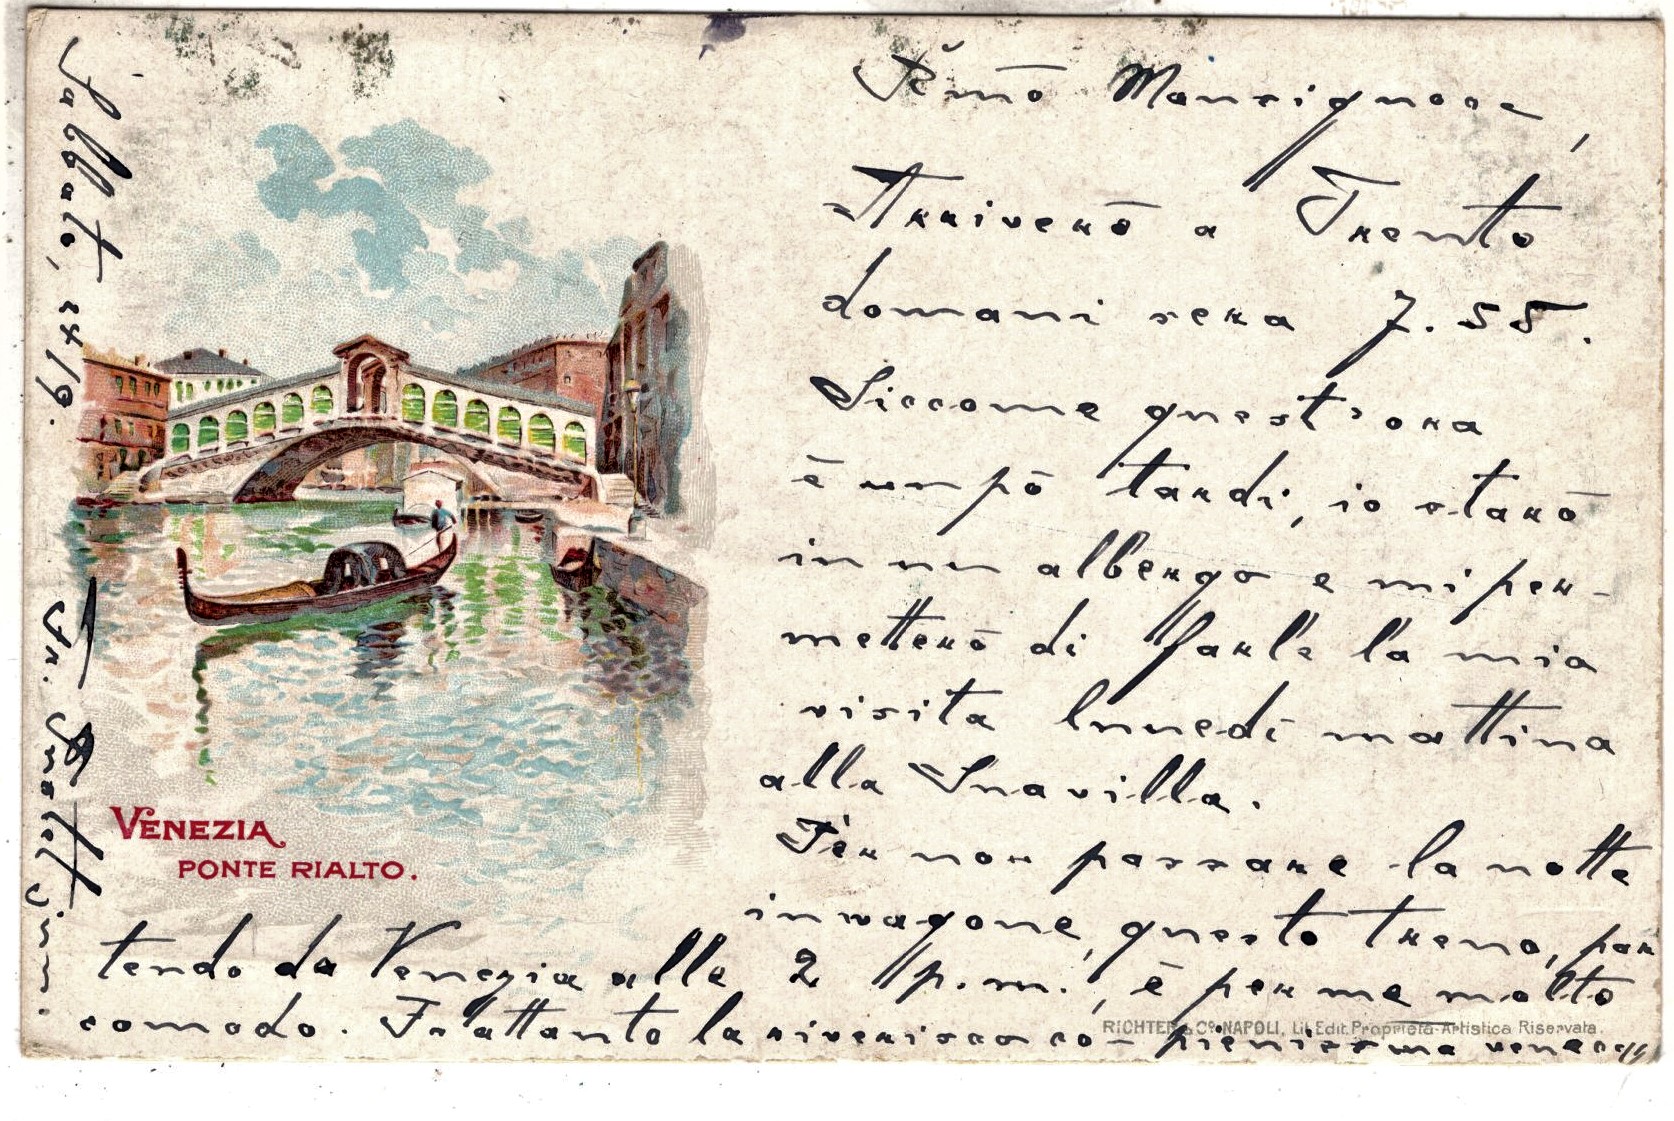 Monsignore,
Arriverò a Trento
domani sera 7.55.
Siccome quest'ora
è un pò tardi, io starò
in un albergo e mi per-
metterò di farle la mia
visita lunedì mattina
alla Sua villa.
Per non passare la notte
in wagone, questo treno, par
tendo da Venezia alle 2 p.m., è per me molto
comodo. Frattanto la riverisco co
Sabbato,
Fr.
VENEZIA
PONTE RIALTO.
RICHTER & Co. NAPOLI, Lit. Edit. Proprietà Artistica Riservata.